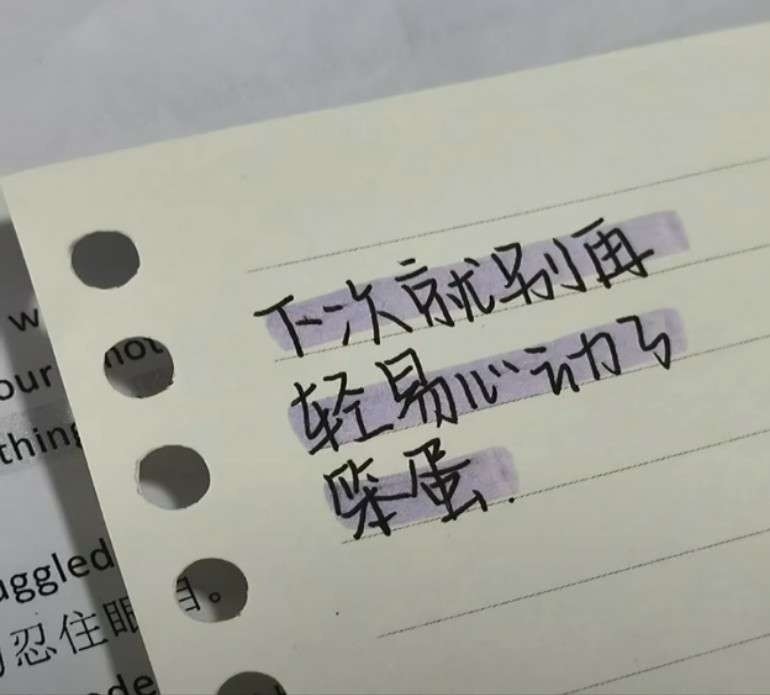 下次就别再
轻易心动了
笨蛋.
our not
thing
uggled
忍住眼